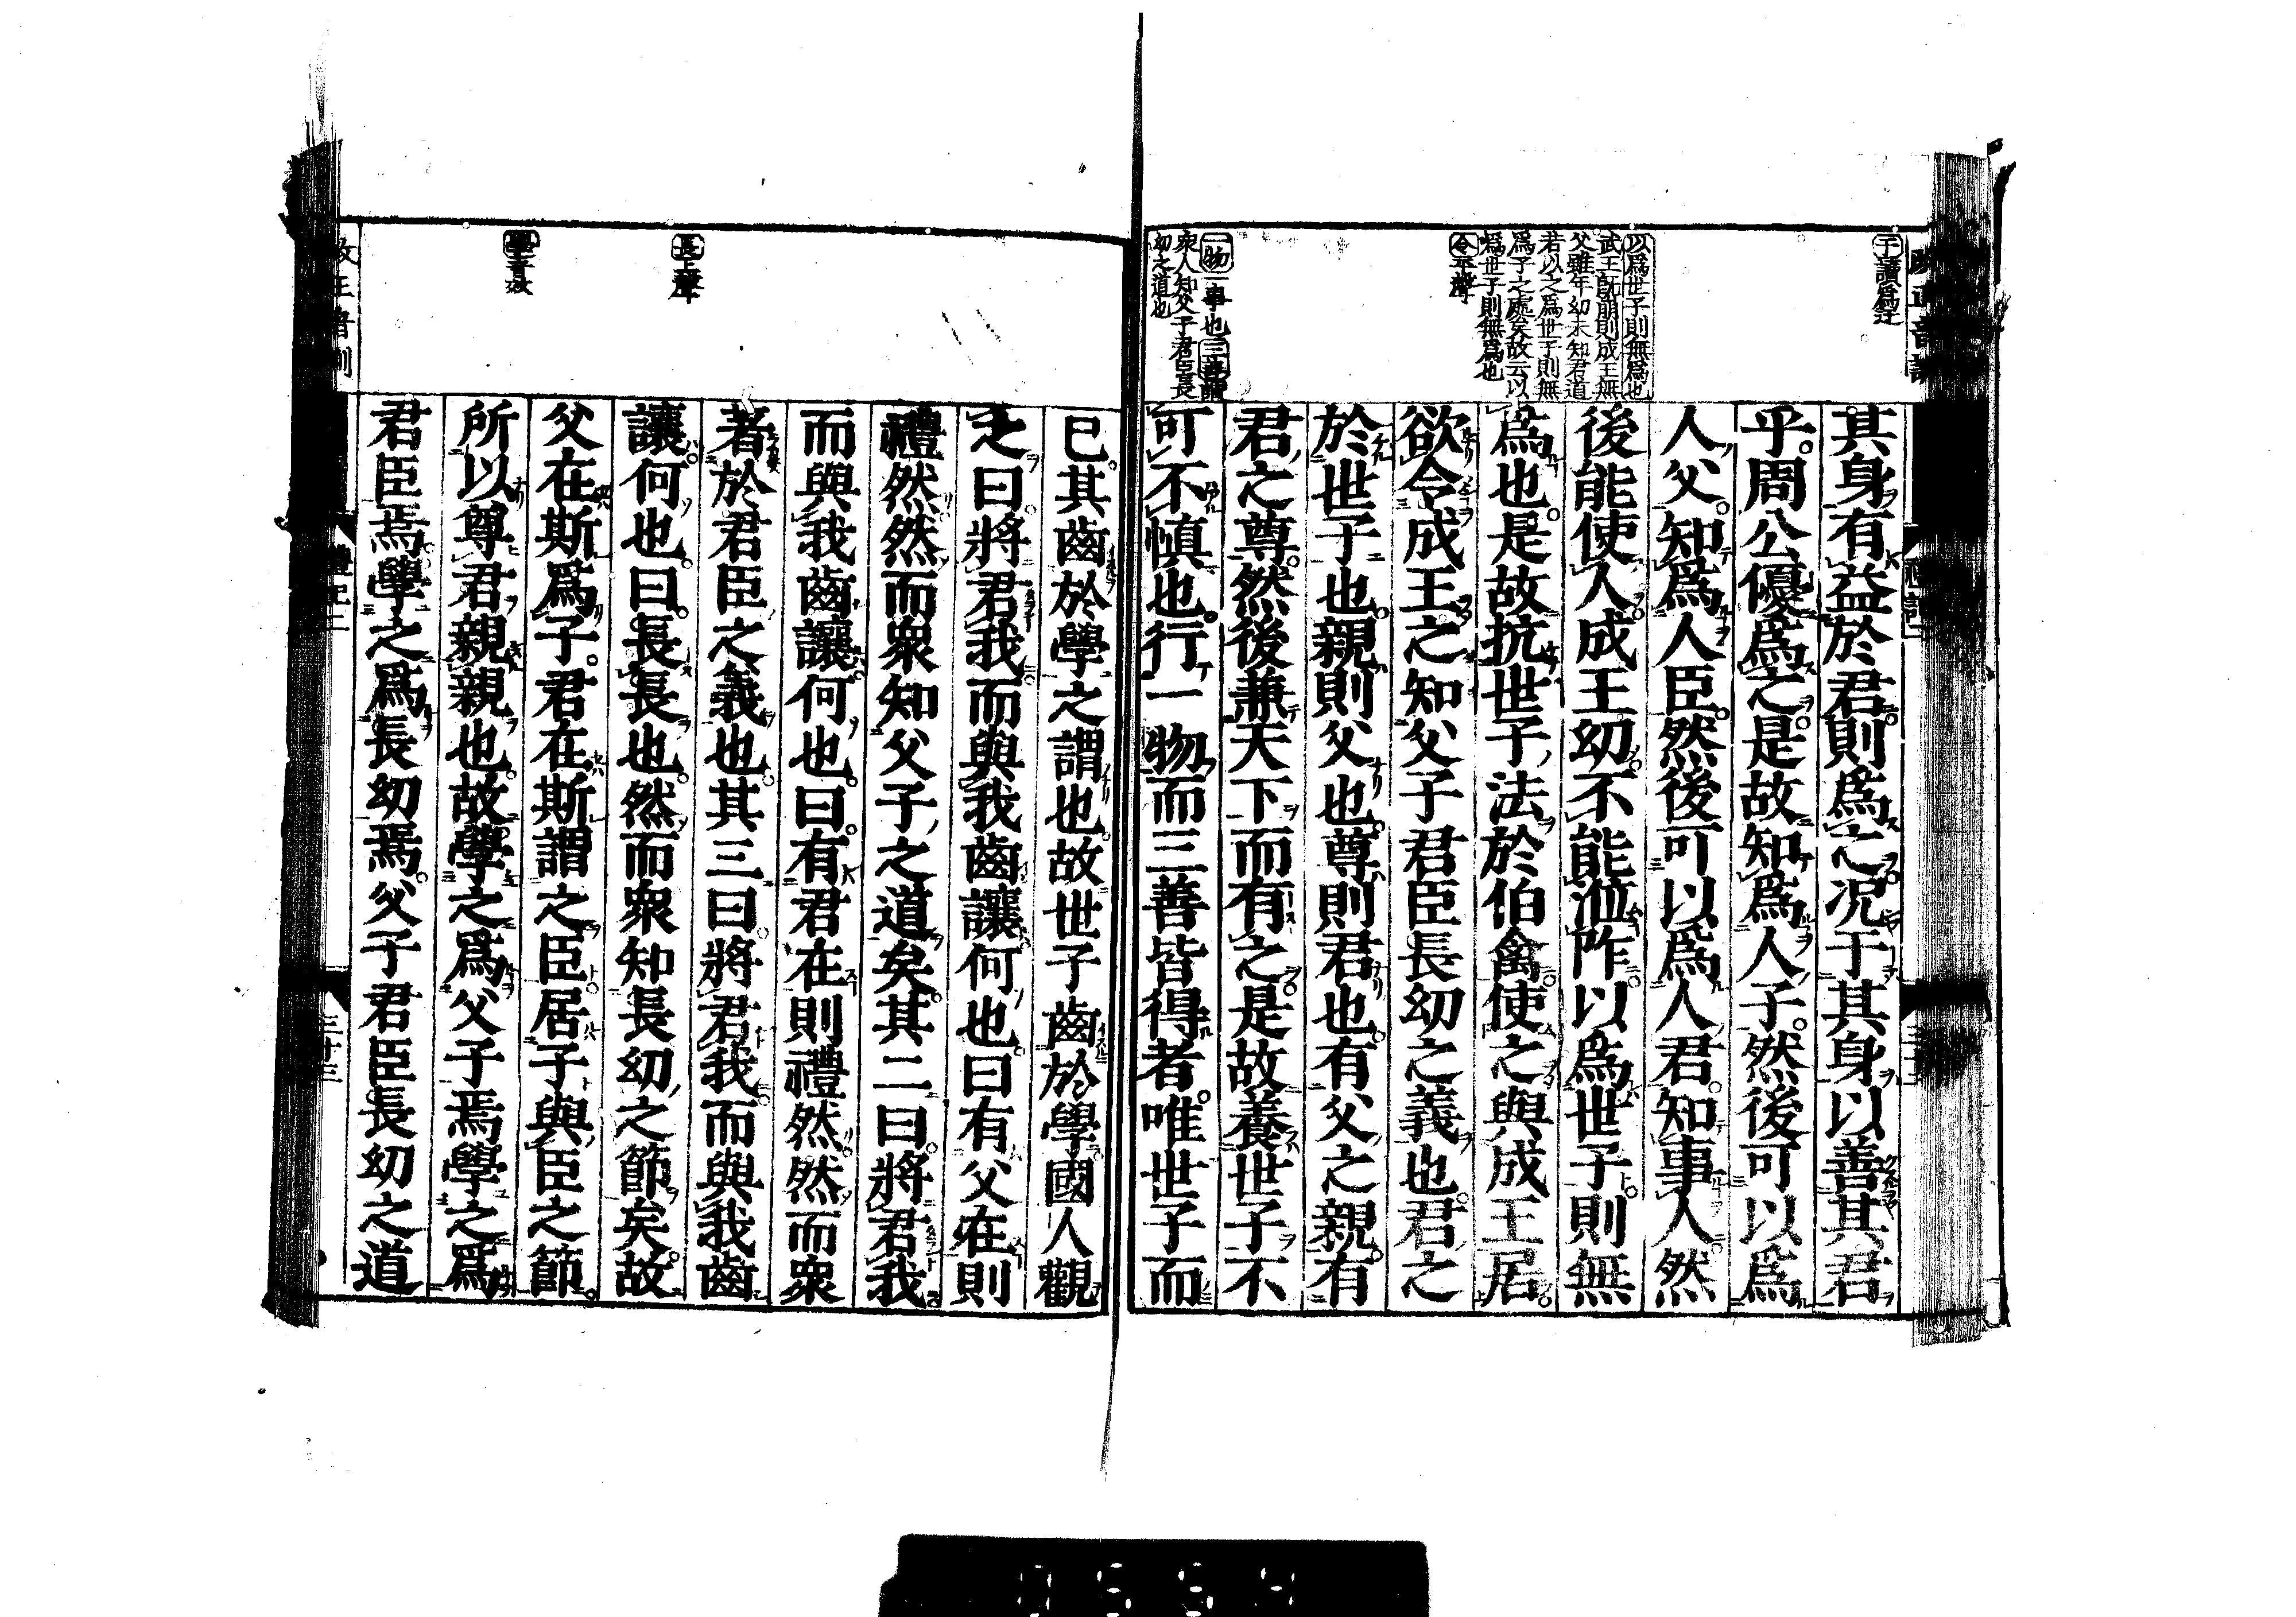 于讀爲迂
以爲世子則無爲也
武王既崩則成王無
父雖年幼未知君道
若以之爲世子則無
爲子之處矣故云以
爲世子則無爲也
令平聲
一物一事也三善謂
衆人知父子君臣長
幼之道也
其身有益於君則爲之况于其身以善其君
乎周公優爲之是故知爲人子然後可以爲
人父知爲人臣然後可以爲人君知事人然
後能使人成王幼不能涖阼以爲世子則無
爲也是故抗世子法於伯禽使之與成王居
欲令成王之知父子君臣長幼之義也君之
於世子也親則父也尊則君也有父之親有
君之尊然後兼天下而有之是故養世子不
可不慎也行一物而三善皆得者唯世子而
長上聲
學音效
已其齒於學之謂也故世子齒於學國人觀
之曰將君我而與我齒讓何也曰有父在則
禮然然而衆知父子之道矣其二曰將君我
而與我齒讓何也曰有君在則禮然然而衆
著於君臣之義也其三曰將君我而與我齒
讓何也曰長長也然而衆知長幼之節矣故
父在斯爲子君在斯謂之臣居子與臣之節
所以尊君親親也故學之爲父子焉學之爲
君臣焉學之爲長幼焉父子君臣長幼之道
禮記二
三十三